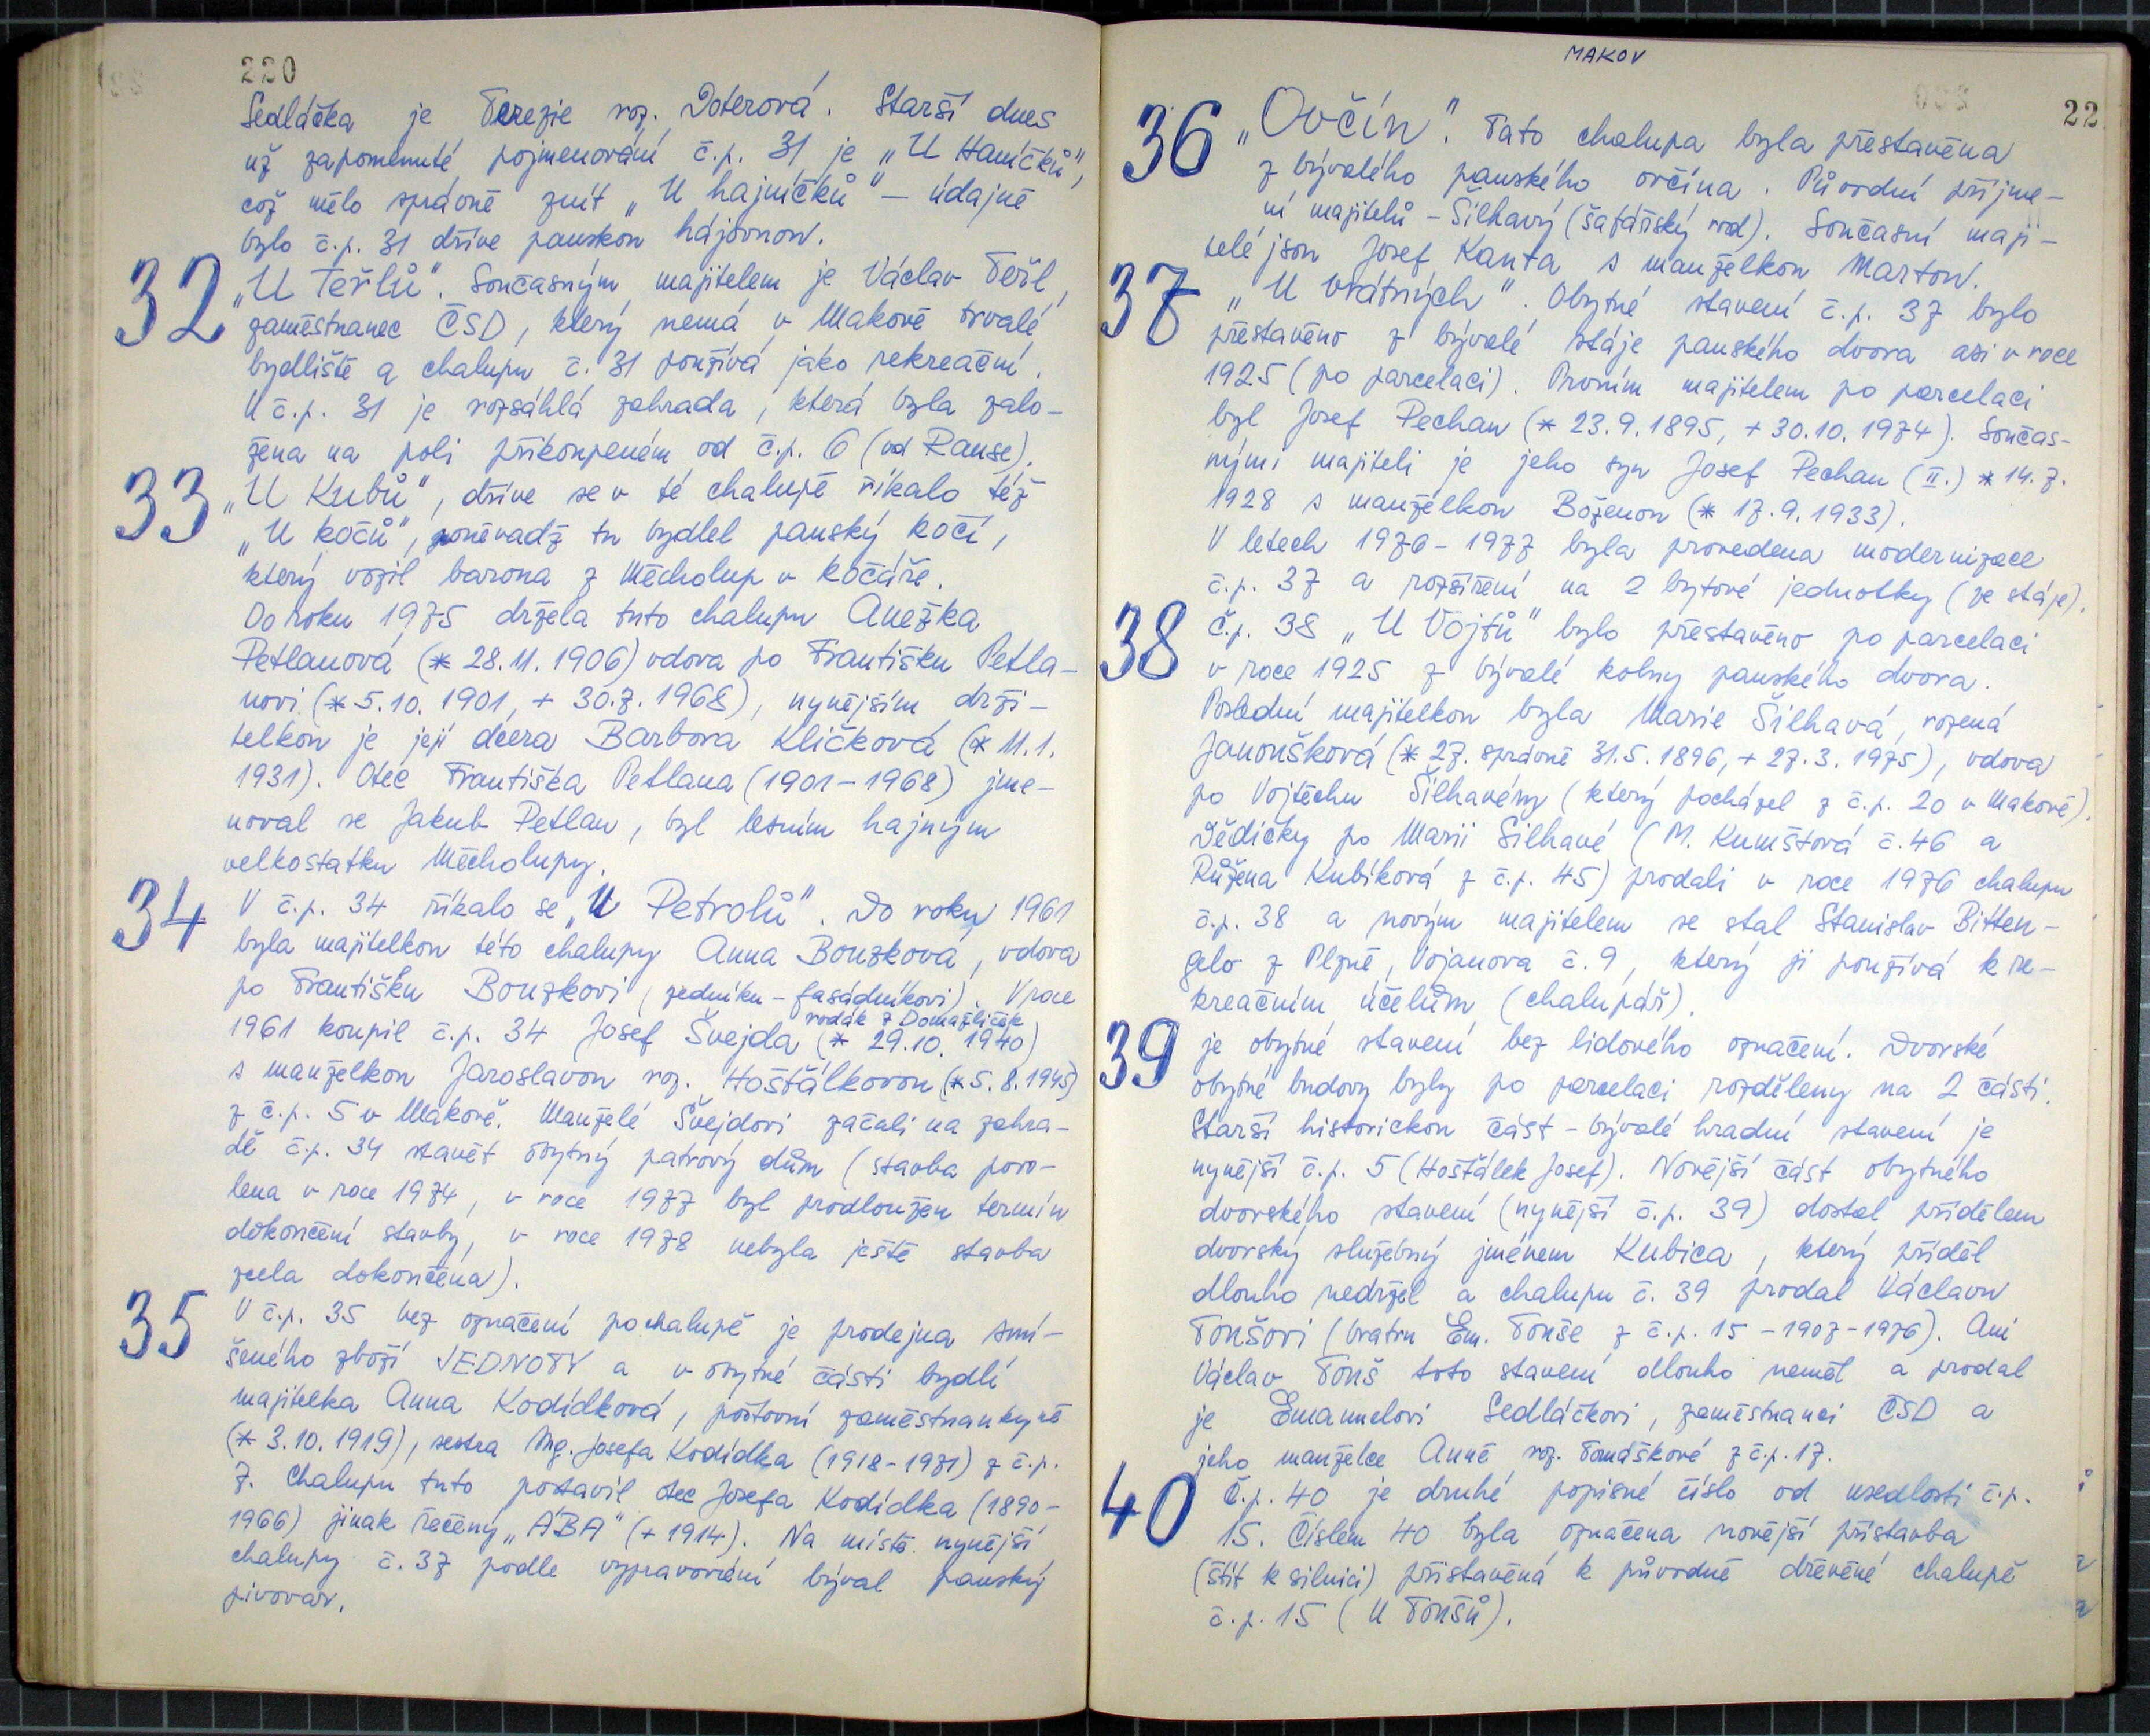 220
Sedláčka je Terezie roz. Doterová. Starší dnes
už zapomenuté pojmenování č.p. 31 je „U Haníčků",
což mělo správně znít „U hajníčků" - údajně
bylo č.p. 31 dříve panskou hájovnou.
32 „U Teřlů". Současným majitelem je Václav Teřl,
zaměstnanec ČSD, který nemá v Makově trvalé
bydliště a chalupu č. 31 používá jako rekreační.
U č.p. 31 je rozsáhlá zahrada, která byla zalo-
žena na poli přikoupeném od č.p. 6 (od Rause).
33 „U Kubů", dříve se v té chalupě říkalo též
„U kočů", poněvadž tu bydlel panský kočí,
který vozil barona z Měcholup v kočáře.
Do roku 1975 držela tuto chalupu Anežka
Petlanová (* 28.11.1906) vdova po Františku Petla-
novi (* 5.10.1901, + 30.7.1968), nynějším drži-
telkou je její dcera Barbora Kličková (* 11.1.
1931). Otec Františka Petlana (1901-1968) jme-
noval se Jakub Petlan, byl lesním hajným
velkostatku Měcholupy.
34 V č.p. 34 říkalo se „U Petrolů". Do roku 1961
byla majitelkou této chalupy Anna Bouzková, vdova
po Františku Bouzkovi (zedníku - fasádníkovi). V roce
rodák z Domažliček
1961 koupil č.p. 34 Josef Švejda (* 29.10. 1940)
s manželkou Jaroslavou roz. Hošťálkovou (* 5.8.1945)
z č.p. 5 v Makově. Manželé Švejdovi začali na zahra-
dě č.p. 34 stavět obytný patrový dům (stavba povo-
lena v roce 1974, v roce 1977 byl prodloužen termín
dokončení stavby, v roce 1978 nebyla ještě stavba
zcela dokončena).
35 V č.p. 35 bez označení po chalupě je prodejna smí-
šeného zboží JEDNOTY a v obytné části bydlí
majitelka Anna Kodídková, poštovní zaměstnankyně
(* 3.10.1919), sestra Ing. Josefa Kodídka (1918-1971) z č.p.
7. Chalupu tuto postavil otec Josefa Kodídka (1890-
1966) jinak řečený „ÁBA" (+ 1914). Na místě nynější
chalupy č. 37 podle vypravování býval panský
pivovar.
MAKOV
22
36 „Ovčín". Tato chalupa byla přestavěna
z bývalého panského ovčína. Původní příjme-
ní majitelů - Šilhavý (šafářský rod). Současní maji-
telé jsou Josef Kanta s manželkou Martou.
37 „U Vrátných". Obytné stavení č.p. 37 bylo
přestavěno z bývalé stáje panského dvora asi v roce
1925 (po parcelaci). Prvním majitelem po parcelaci
byl Josef Pechan (* 23.9.1895, + 30.10.1974). Součas-
nými majiteli je jeho syn Josef Pechan (II.) * 14.7.
1928 s manželkou Boženou (* 17.9.1933).
V letech 1976-1977 byla provedena modernizace
č.p. 37 a rozšíření na 2 bytové jednotky (ze stáje).
38 č.p. 38 „U Vojtů" bylo přestavěno po parcelaci
v roce 1925 z bývalé kolny panského dvora.
Poslední majitelkou byla Marie Šilhavá, rozená
Janoušková (* 27. správně 31.5.1896, + 27.3.1975), vdova
po Vojtěchu Šilhavému (který pocházel z č.p. 20 v Makově).
Dědičky po Marii Silhavé (M. Kumštová č.46 a
Růžena Kubíková z č.p. 45) prodali v roce 1976 chalupu
č.p. 38 a novým majitelem se stal Stanislav Bitten-
gelo z Plzně, Vojanova č. 9, který ji používá k re-
kreačním účelům (chalupář).
39 je obytné stavení bez lidového označení. Dvorské
obytné budovy byly po parcelaci rozděleny na 2 části.
Starší historickou část - bývalé hradní stavení je
nynější č.p. 5 (Hošťálek Josef). Novější část obytného
dvorského stavení (nynější č.p. 39) dostal přídělem
dvorský služebný jménem Kubica, který příděl
dlouho nedržel a chalupu č. 39 prodal Václavu
Toušovi (bratru Em. Touše z č.p. 15 - 1907-1976). Ani
Václav Touš toto stavení dlouho neměl a prodal
je Emanuelovi Sedláčkovi, zaměstnanci ČSD a
jeho manželce Anně roz. Tomáškové z č.p. 17.
40 Č.p. 40 je druhé popisné číslo od usedlosti č.p.
15. Číslem 40 byla označena novější přístavba
(štít k silnici) přistavěná k původně dřevěné chalupě
č.p. 15 (U Toušů).